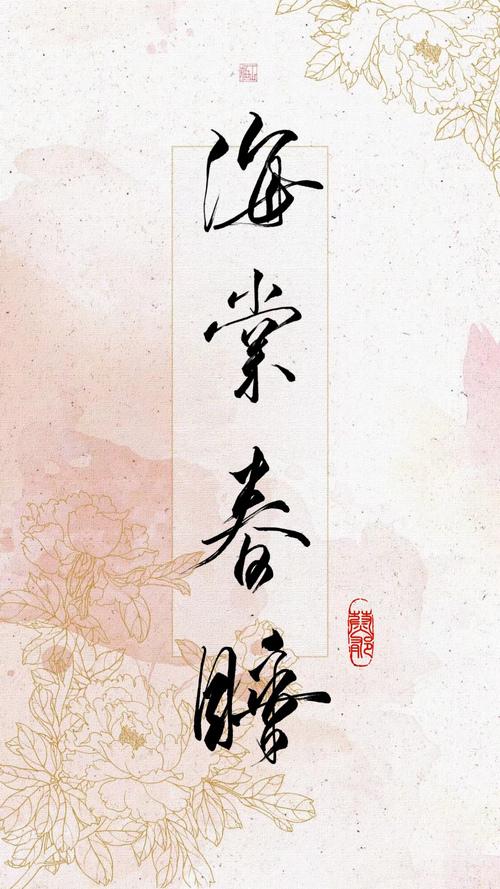 海棠春睡